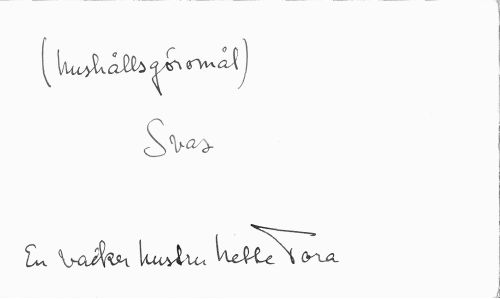 (hushållsgöromål)
Svas
En vacker hustru hette Tora